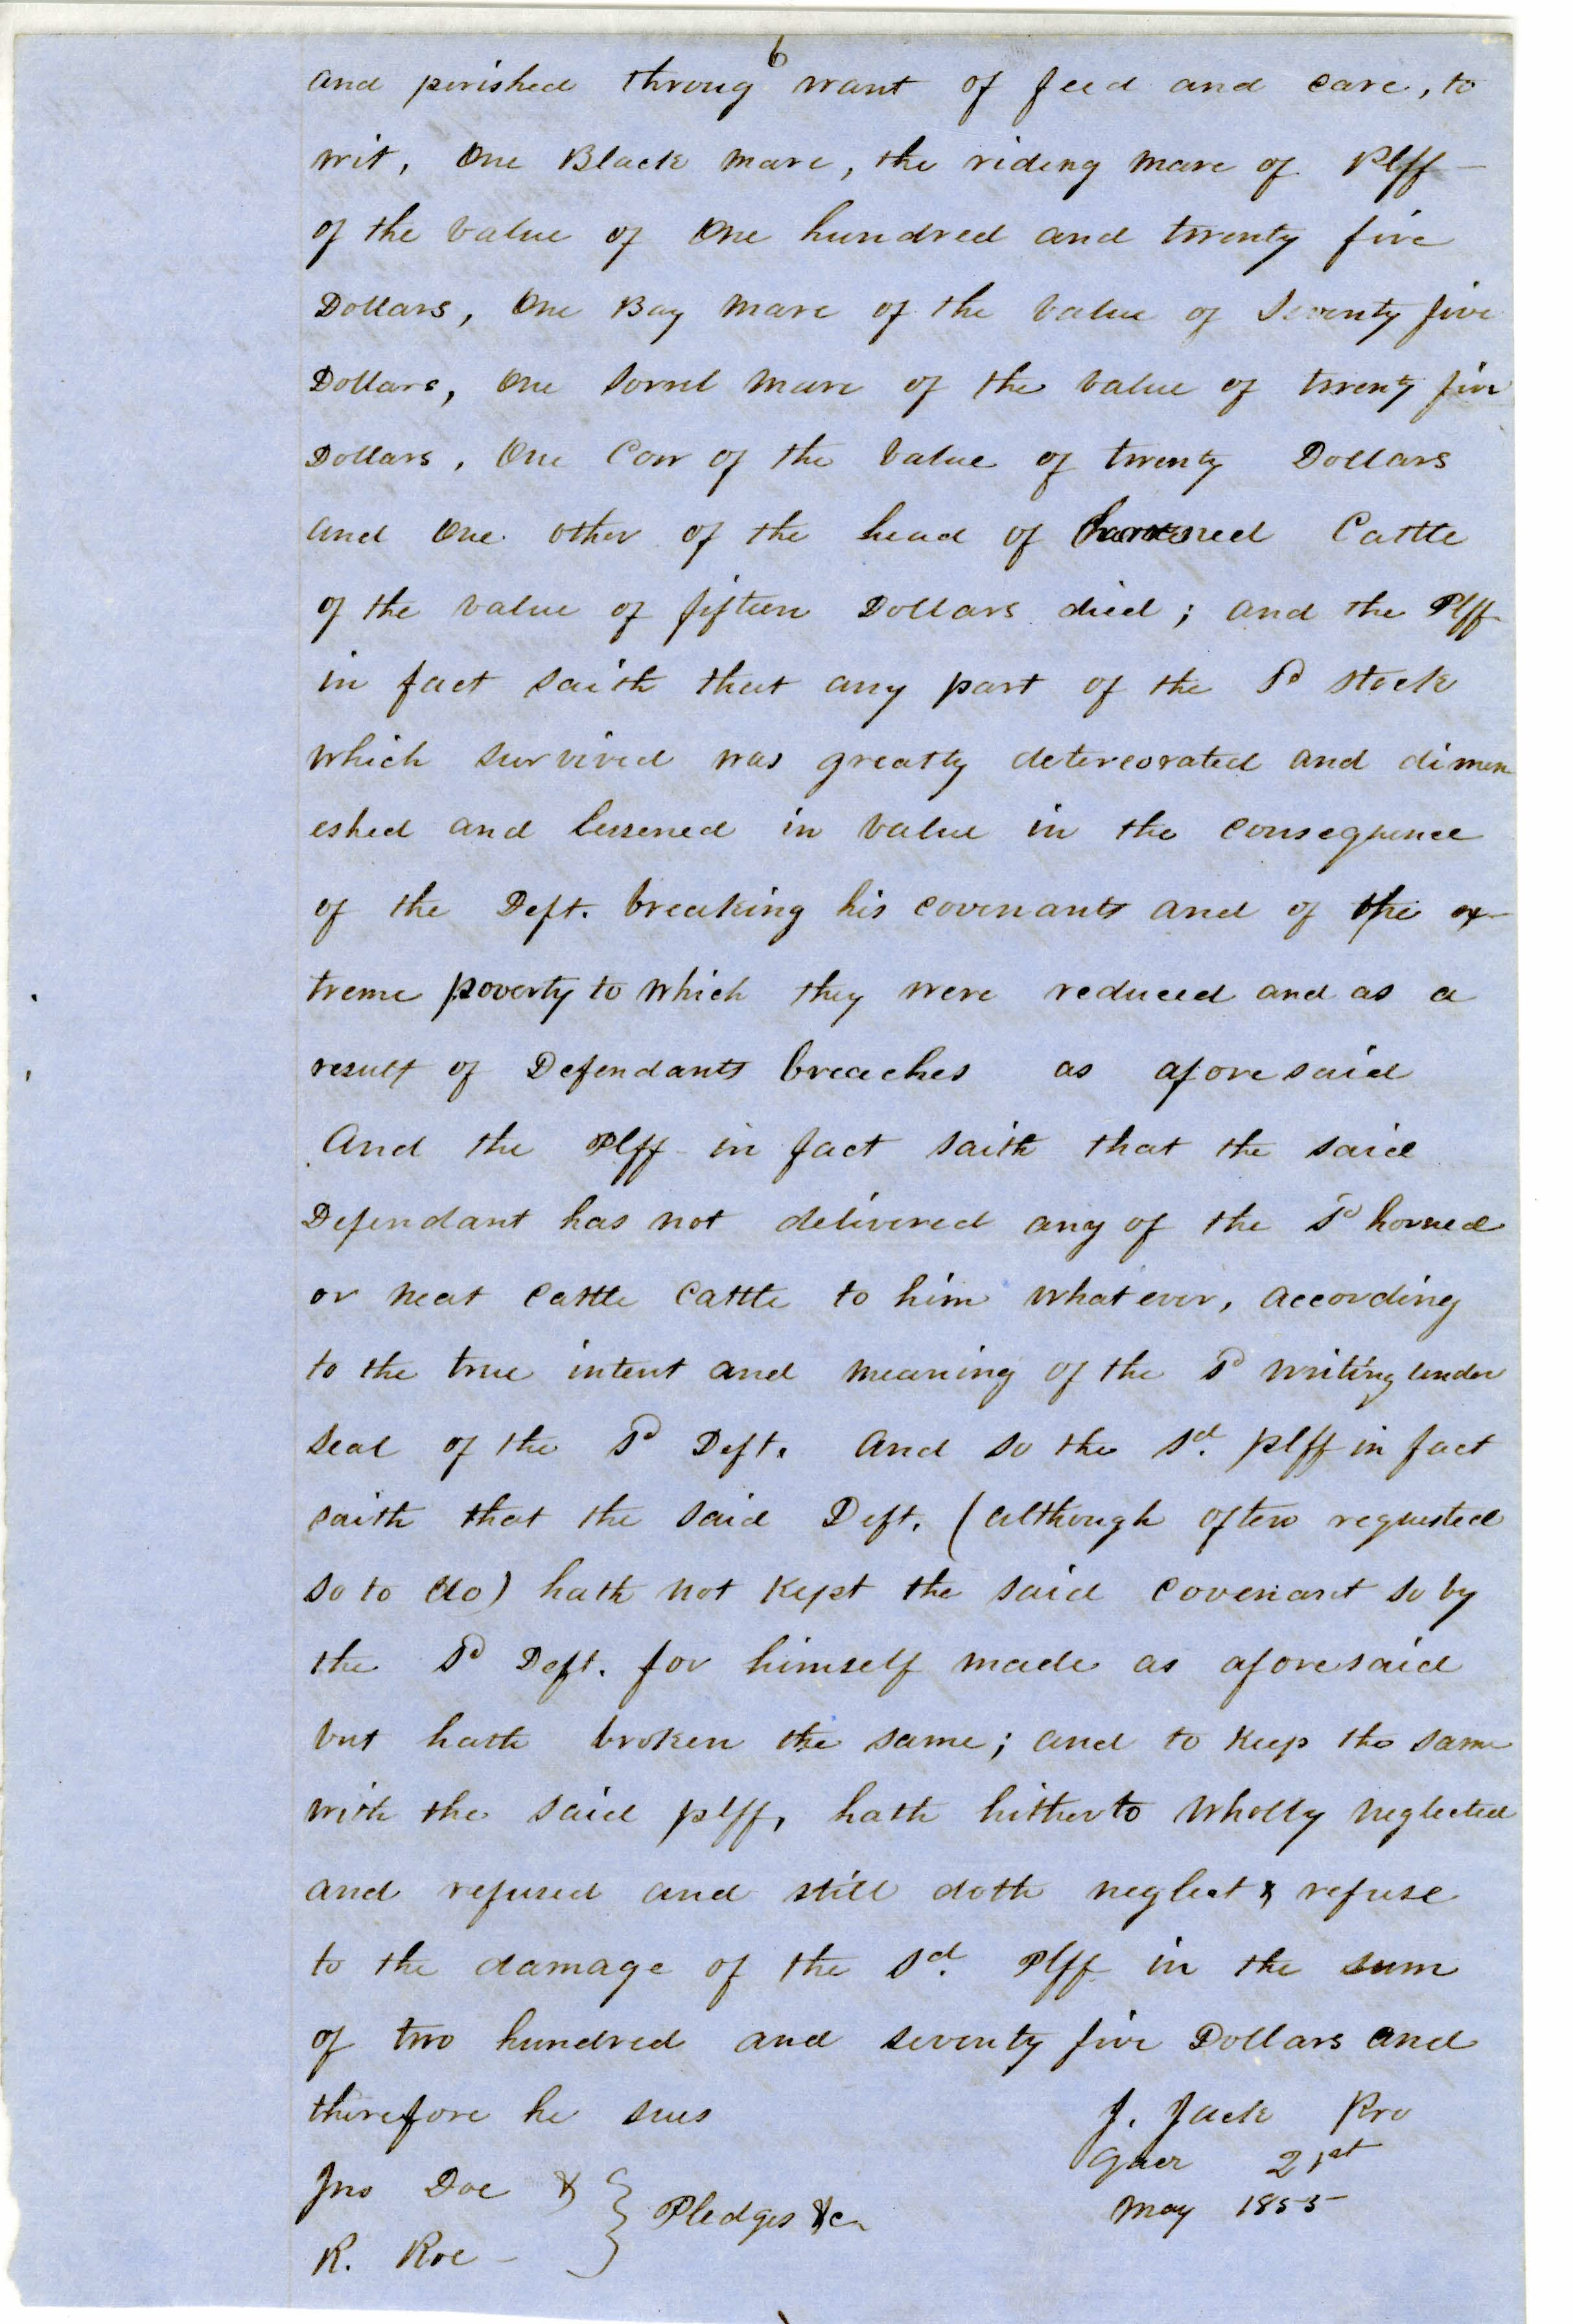 6
and perished throug want of feed and care, to
wit, One Black mare, the riding mare of Plff
of the value of One hundred and twenty five
Dollars, One Bay mare of the value of Seventy five
Dollars, One Sorrel mare of the value of twenty five
Dollars, One Cow of the value of twenty Dollars
and One other of the head of horned Cattle
of the value of fifteen Dollars died; and the Plff
in fact saith that any part of the Sd stock
which survived was greatly detereorated and dimen
eshed and lessened in value in the consequence
of the Deft. breaking his covenants and of the ex-
treme poverty to which they were reduced and as a
result of Defendants breaches as aforesaid
And the Plff in fact saith that the said
Defendant has not delivered any of the Sd horned
or neat cattle cattle to him whatever, according
to the true intent and meaning of the Sd writing under
seal of the Sd Deft. And so the sd. plff in fact
saith that the said Deft. (although often requested
so to do) hath not kept the said covenant so by
the Sd Deft. for himself made as aforesaid
but hath broken the same; and to keep the same
with the said plff, hath hitherto wholly neglected
and refused and still doth neglect & refuse
to the damage of the sd. Plff in the sum
of two hundred and seventy five Dollars and
therefore he sues
J. Jack Pro
Quer 21st
May 1855
Jno Doe &
R. Roe -
} Pledges &c